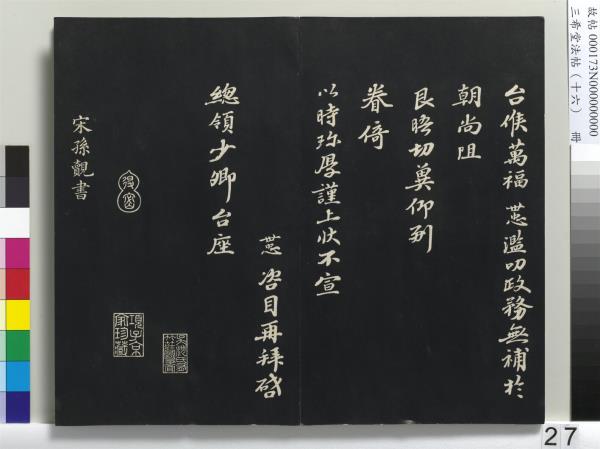 台候萬福 懋濫叨政務無補於
朝尚阻
良晤切冀仰副
眷倚
以時珎厚謹上狀不宣
懋 咨目再拜啓
總領少卿台座
宋孫覿書
項子京家珍藏
故帖 000173N000000000
三希堂法帖（十六） 冊
27